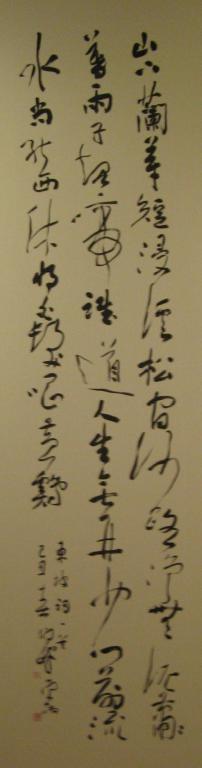 山下蘭芽短浸溪松間沙路淨無泥蕭〻
暮雨子規啼誰道人生無再少門前流
水尚能西休將白髮唱黃雞
東坡詞一首
己丑